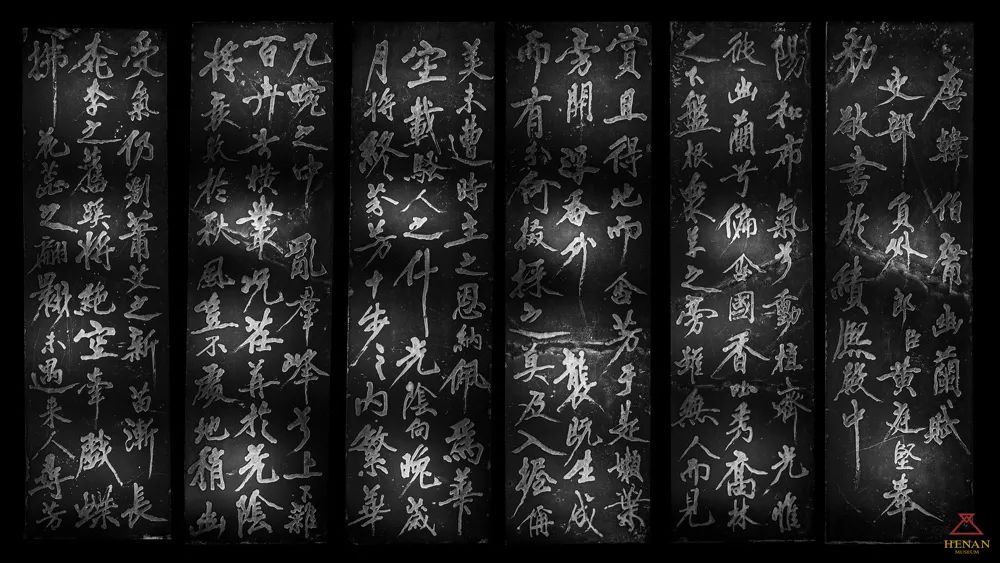 唐韓伯庸幽蘭賦
吏部員外郎臣黃庭堅奉
勑敬書於績熙殿中
陽和布氣兮動植齊光惟
彼幽蘭兮偏含國香吐秀喬林
之下盤根衆草之旁雖無人而見
賞且得地而含芳于是嫩葉
旁開浮香外襲旣生成
而有分何掇採之莫及入握佩
美未遭時主之恩納佩爲華
空載騷人之什光陰向晚歲
月將終芬芳十步之內繁華
九畹之中亂羣峰兮上下雜
百卉兮橫叢況荏苒於光陰
將衰敗於秋風豈不處地稍幽
受氣仍別蕭艾之新苗漸長
桃李之舊蹊將絕空牽戲蝶
拂花蕊之翩翾未遇來人尋芳
HENAN
MUSEUM